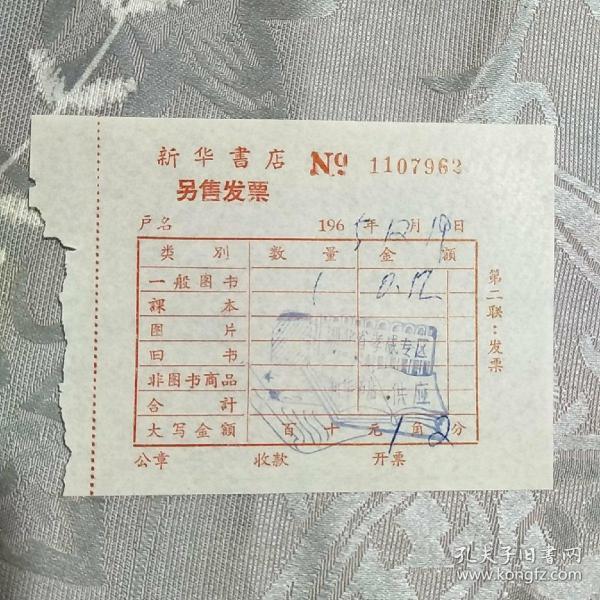 新华書店 № 1107962
另售发票
戶名 1965年12月19日
类别 数量 金額
一般图书 1 0.12
課本
图片
旧书
非图书商品
合計
大写金額 百十元1角2分
公章 收款 开票
第二联：发票
专区
供应
孔夫子旧书网
www.kongfz.com